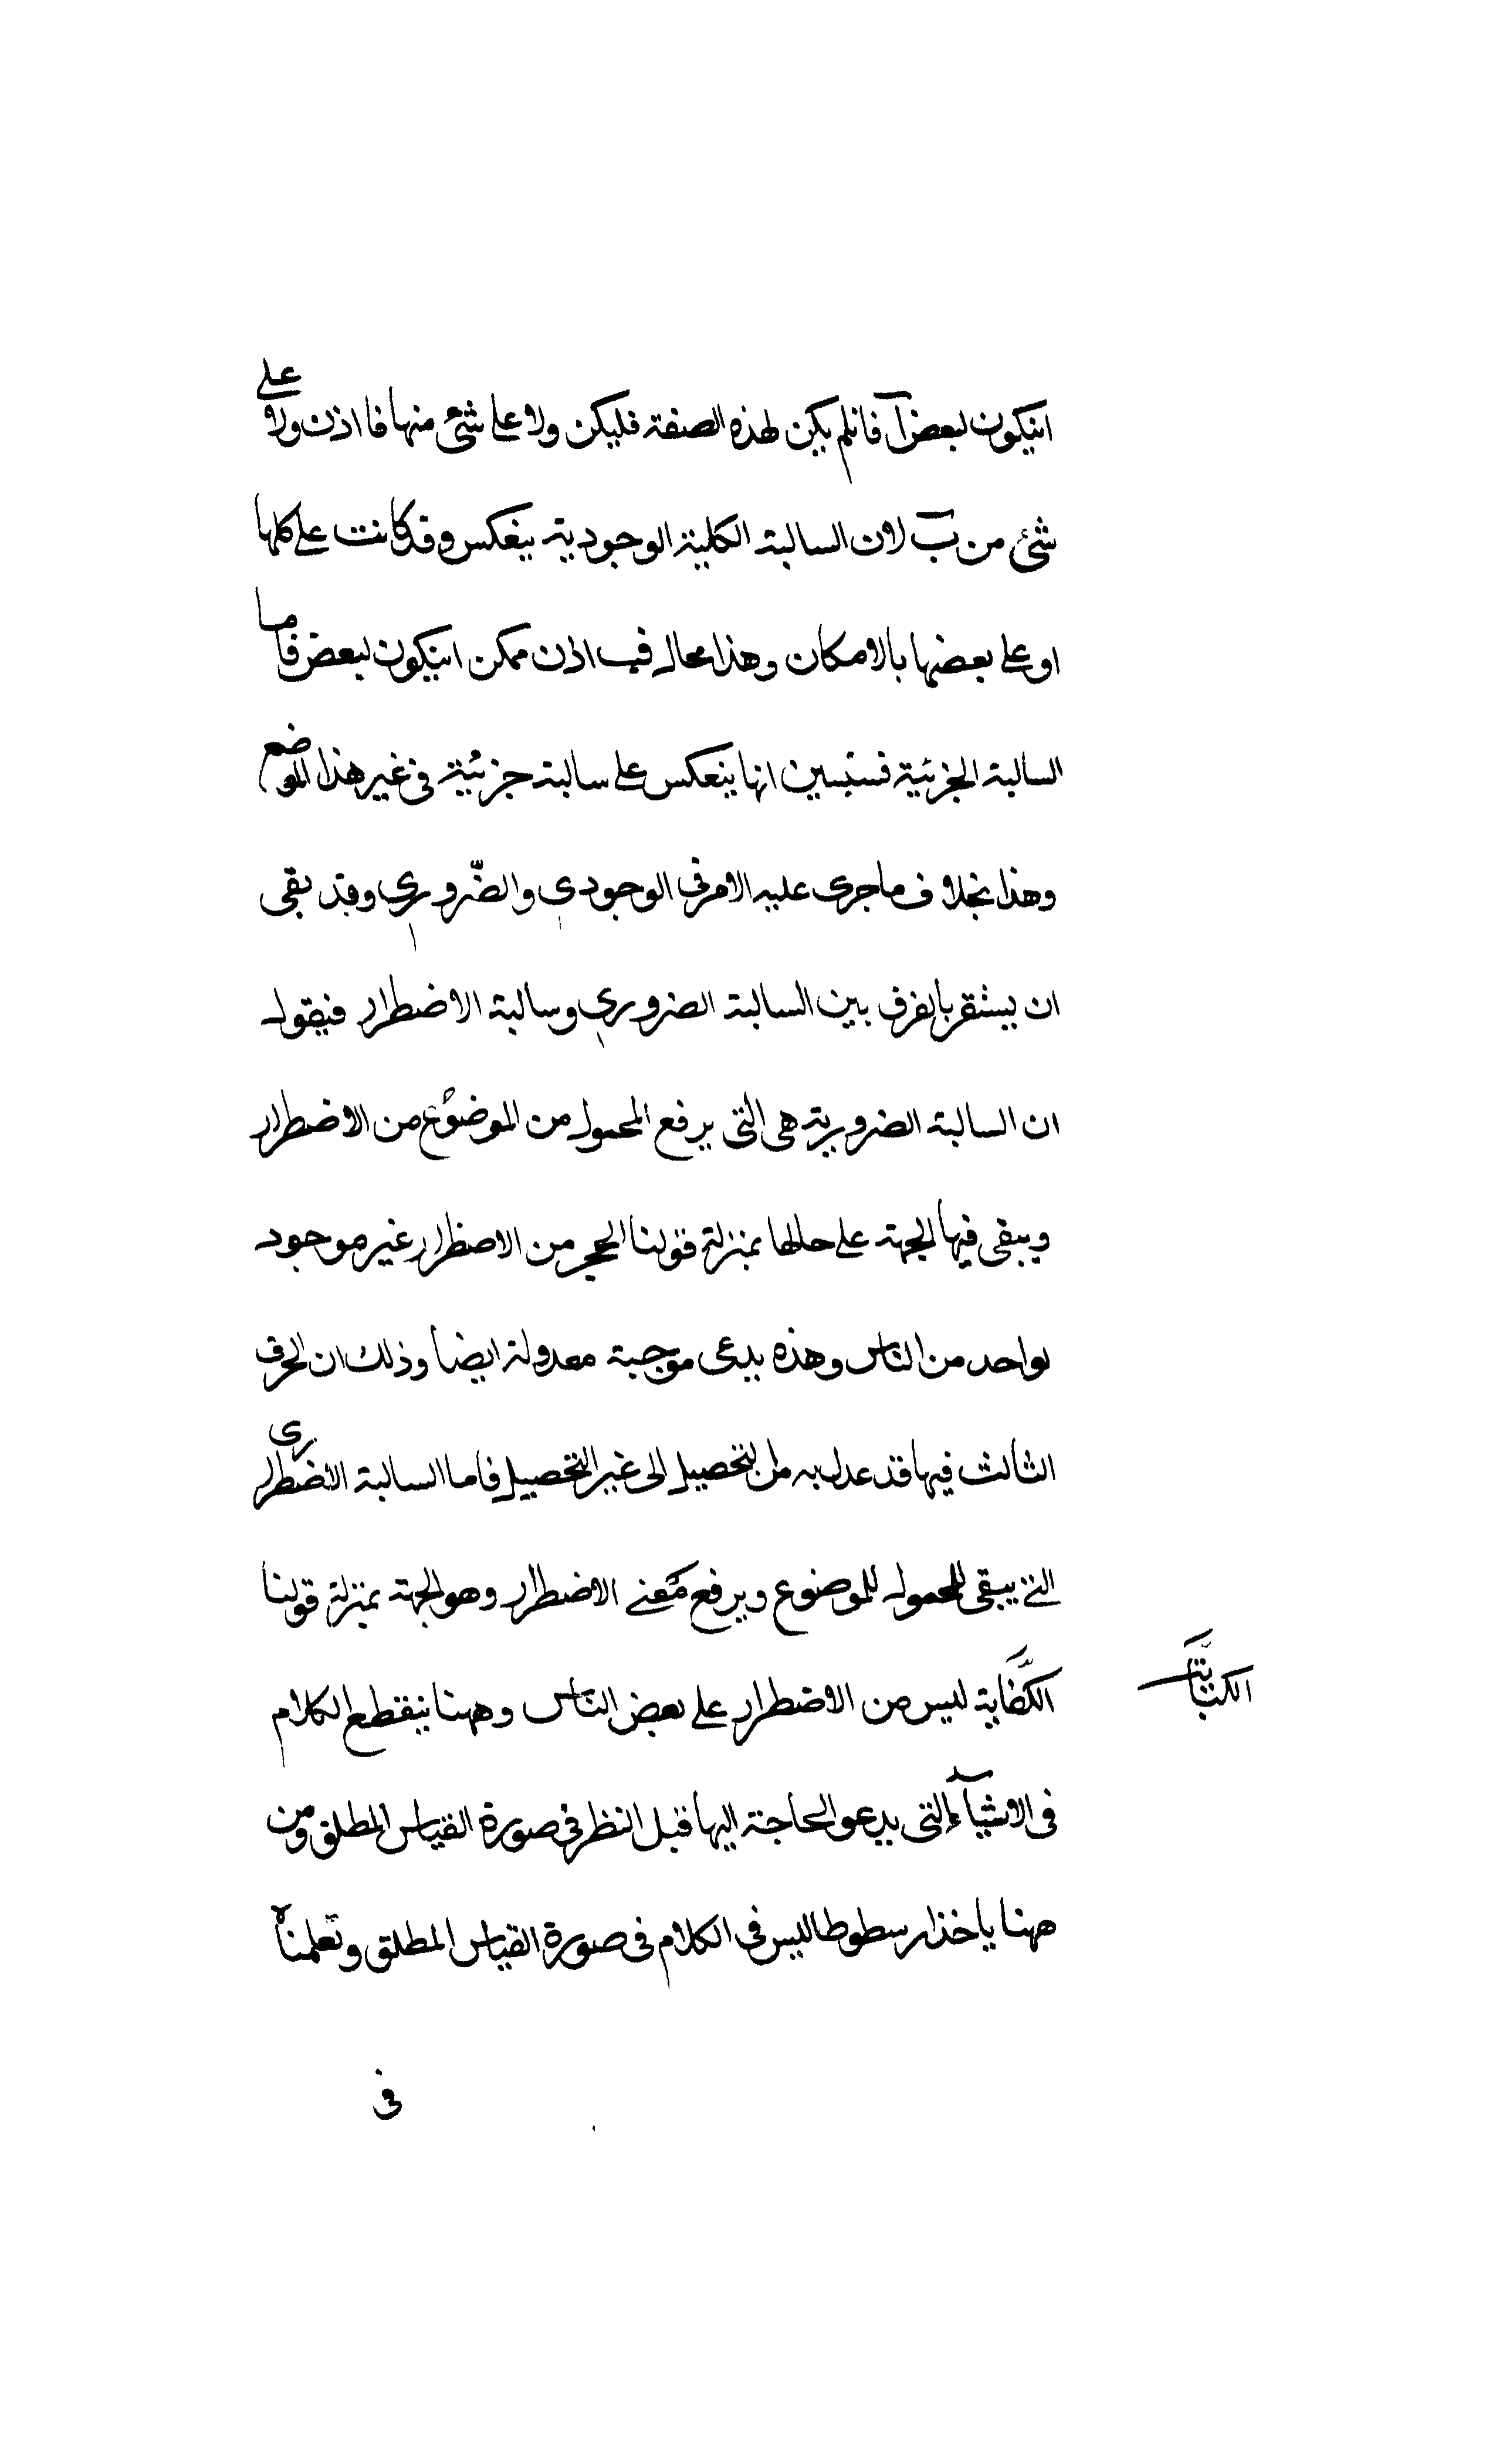 انيكون لبعض آ فانلم يكن لهذه الصفة فليكن ولا على شئ منها فا اذن ولا على
شئ من ب لان السالبة الكلية الوجودية ينعكس وقد كانت على كلها
او على بعضها بالامكان وهذا محال فب اذن ممكن انيكون لبعض فاما
السالبة الجزئية فستبين انها ينعكس على سالبة جزئية فى غير هذا الموضع
وهذا بخلاف ما جرى عليه الامر فى الوجودى والضّرورى وقد بقى
ان يستقر بالفرق بين السالبة الضرورى وسالبة الاضطرار فنقول
ان السالبة الضرورية هى التى يرفع المحمول من الموضوع من الاضطرار
ويبقى فيها الجهة على حالها بمنزلة قولنا الحجر من الاضظرار غير موجود
لواحد من الناس وهذه يدعى موجبة معدولة ايضا وذلك ان الحرف
الثالث فيها قد عدل به من التحصيل الى غير التحصيل فاما السالبة الاضطرارى
التى يبقى المحمول للموضوع ويرفع معنى الاضطرار وهو الجهة بمنزلة قولنا
ليس من الاضطرار على بعض الناس وههنا ينقطع الكلام
الكتابة
فى الاشيآء التى يدعو الحاجة اليها قبل النظر فى صورة القياس المطلق ومن
ههنا ياخذ ارسطوطاليس فى الكلام فى صورة القياس المطلق وتعلمناه
فى